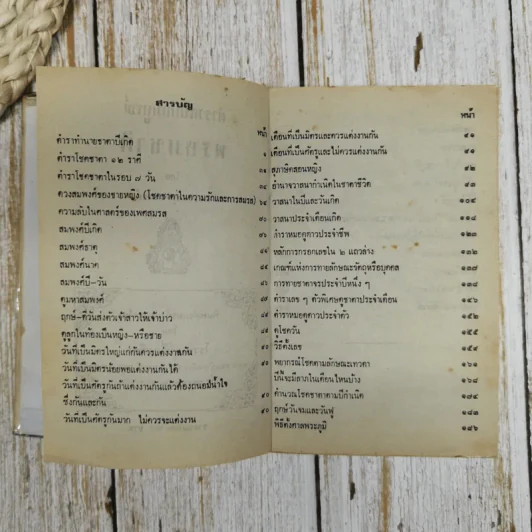 สารบัญ
หน้า
ตำราทำนายชาตาปีเกิด
ตำราโชคชาตา ๑๒ ราศี
ตำราโชคชาตาในรอบ ๗ วัน
ดวงสมพงศ์ของชายหญิง (โชคชาตาในความรักและการสมรส)
ความลับในศาสตร์ของเพศสมรส
สมพงศ์ปีเกิด
สมพงศ์ธาตุ
สมพงศ์นาค
สมพงศ์ปี-วัน
ดูมหาสมพงศ์
ฤกษ์-ดิวันส่งตัวเจ้าสาวให้เจ้าบ่าว
ดูลูกในท้องเป็นหญิง-หรือชาย
วันที่เป็นมิตรใหญ่แก่กันควรแต่งงานกัน
วันที่เป็นมิตรน้อยพอแต่งงานกันได้
วันที่เป็นศัตรูกันถ้าแต่งงานกันแล้วต้องถนอมน้ำใจ
ซึ่งกันและกัน
วันที่เป็นศัตรูกันมาก ไม่ควรจะแต่งงาน
หน้า
เดือนที่เป็นมิตรและควรแต่งงานกัน ๕๑
เดือนที่เป็นศัตรูและไม่ควรแต่งงานกัน ๕๑
สุภาษิตสอนหญิง ๕๒
อำนาจวาสนากำเนิดในชาตาชีวิต ๕๓
วาสนาในปีและวันเกิด
วาสนาประจำเดือนเกิด ๑๑๘
ตำราหมอดูดาวประจำชีพ ๑๒๓
หลักการกรอกเลขใน ๒ แถวล่าง ๑๓๒
เกณฑ์แห่งการทายลักษณะรัตถุหรือบุคคล ๑๓๗
การทายชาตาจรประจำปีหนึ่ง ๆ ๑๓๘
ตำราเลข ๗ ตัวพิเศษดูชาตาประจำเดือน ๑๕๖
ตำราหมอดูดาวประจำตัว
ดูโชควัน ๑๕๕
วิธีตั้งเลข ๑๕๕
พยากรณ์โชคตามลักษณะเทวดา ๑๖๔
ปีนี้จะมีลาภในเดือนไหนบ้าง ๑๖๘
คำนวณโชคชาตาตามปีกำเนิด ๑๗๔
ฤกษ์วันจมและวันฟู ๑๘๓
พิธีตั้งศาลพระภูมิ ๑๘๖